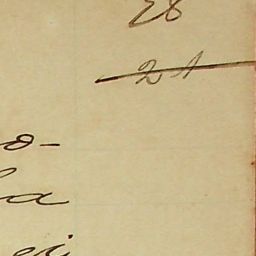 28
21
o-
la
ei